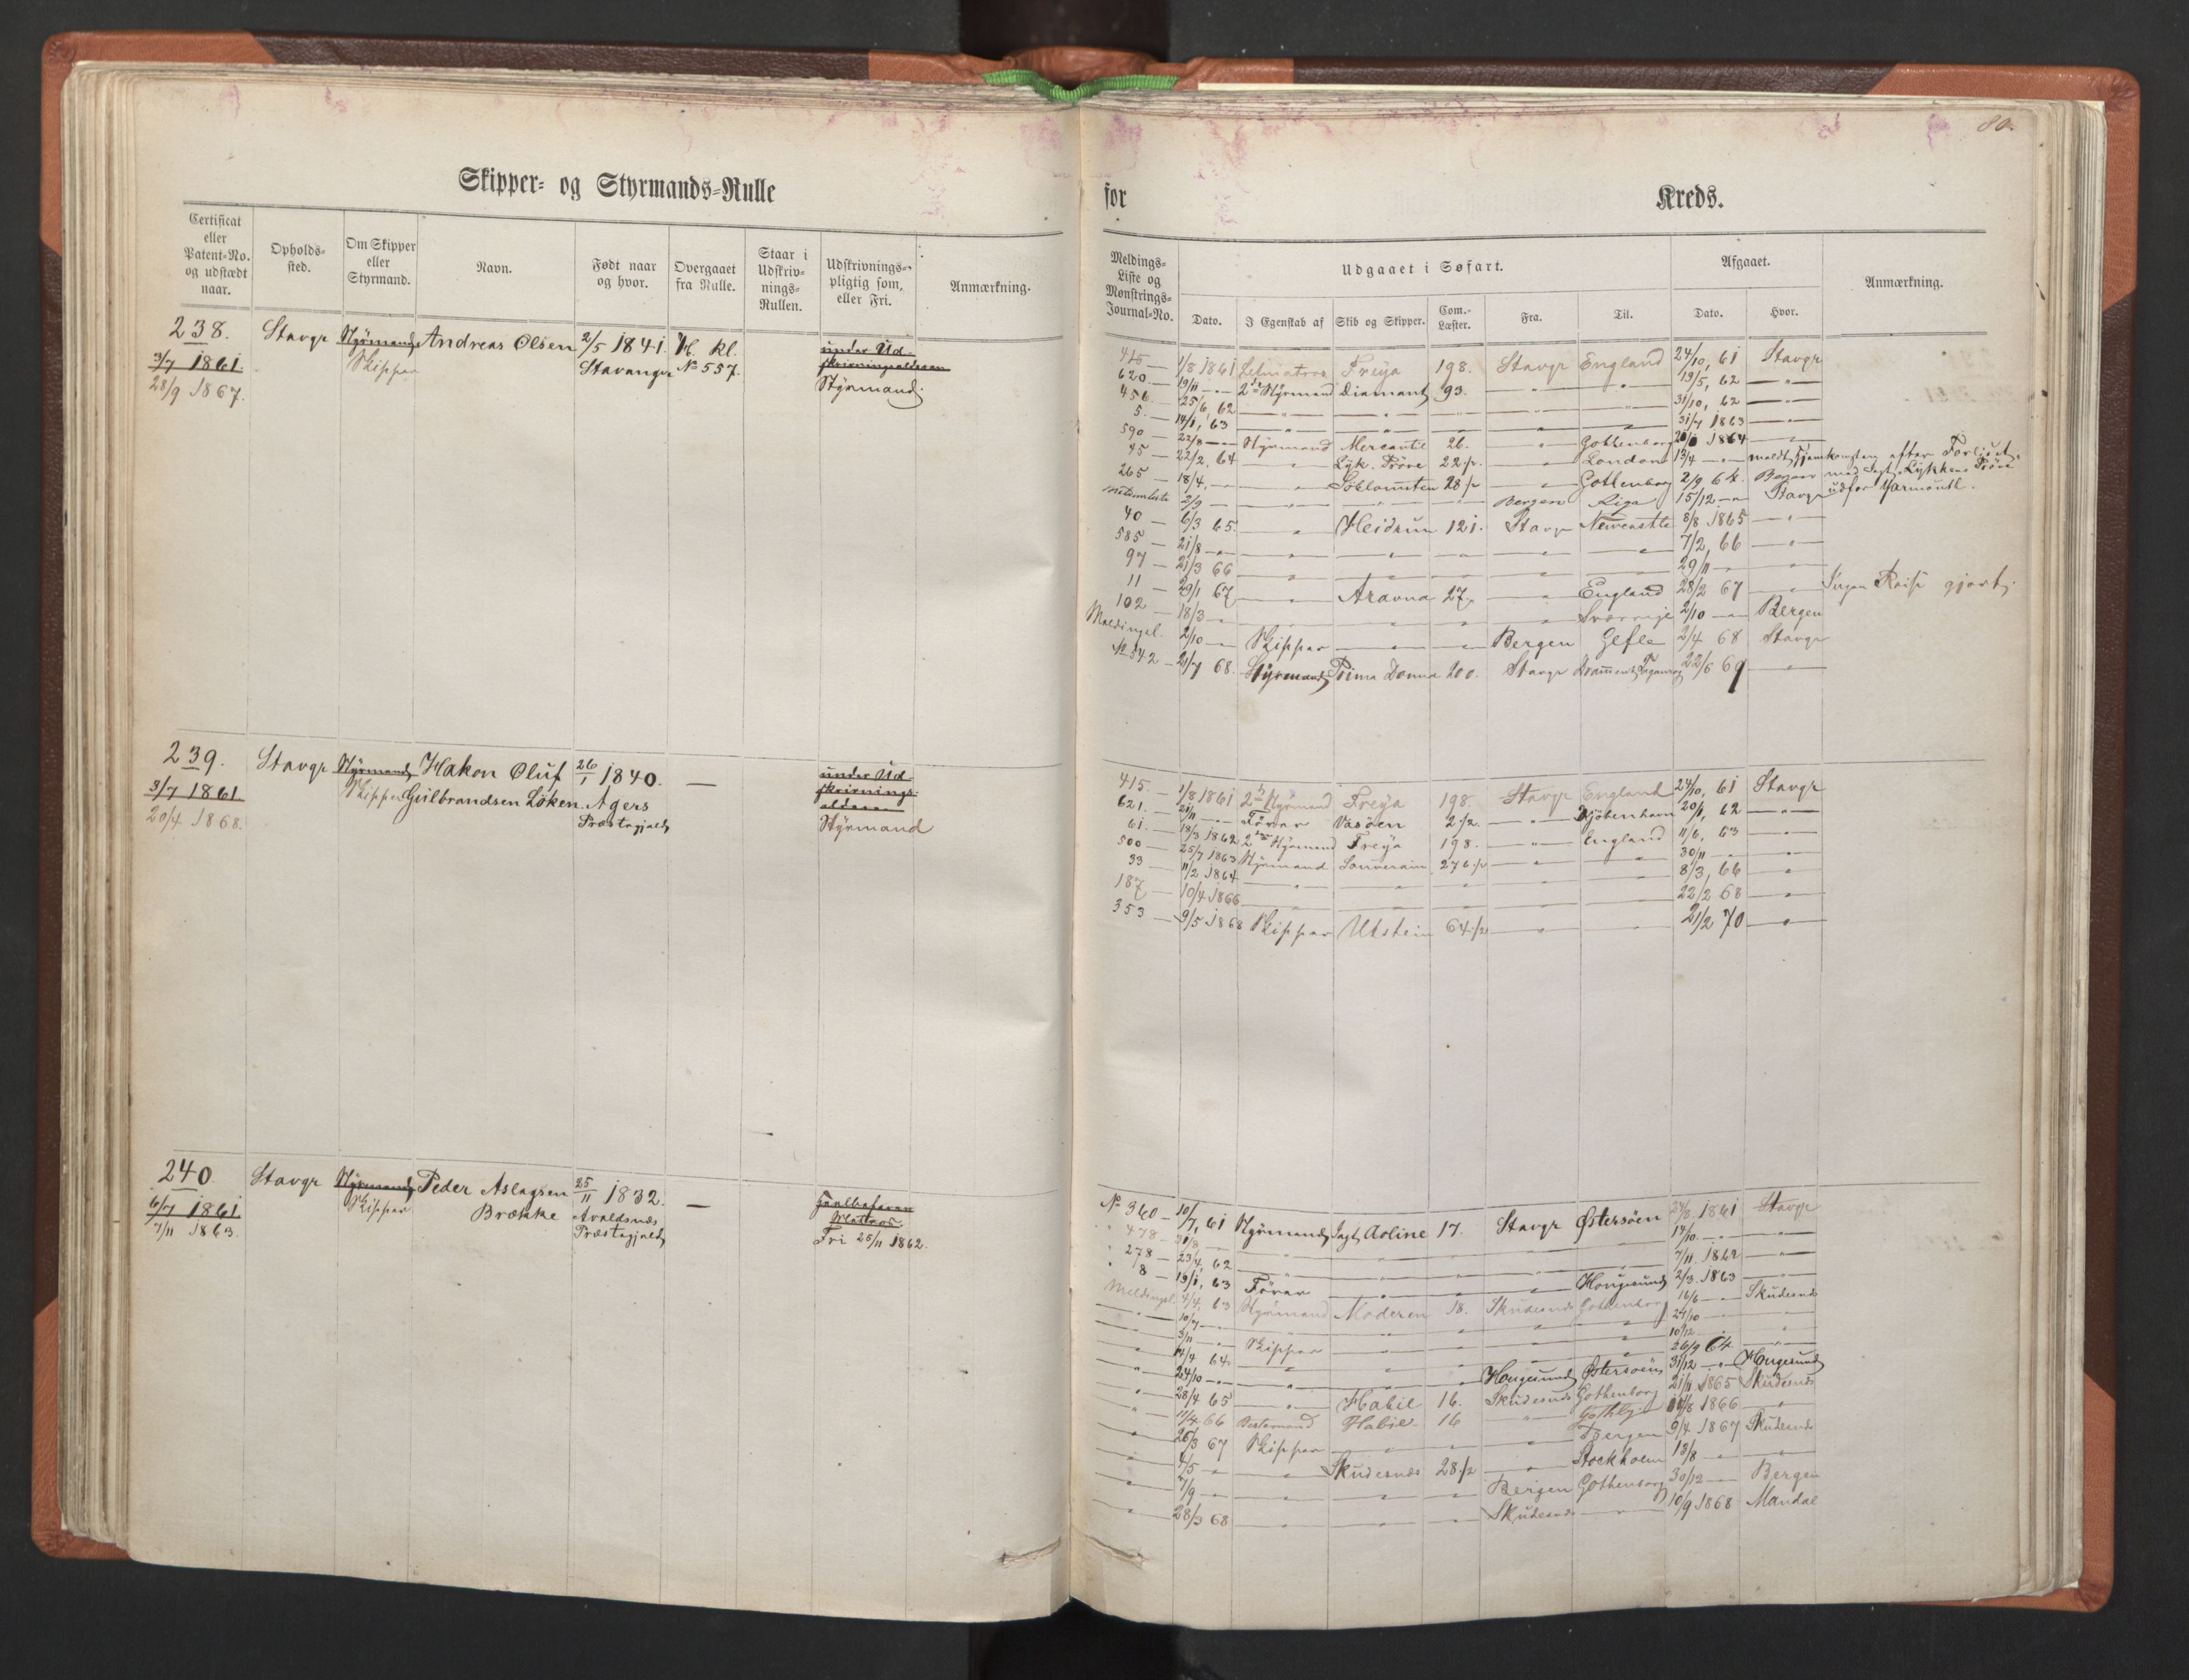 80.
Skipper- og Styrmands-Rulle
for Kreds.
Certificat eller Patent-No. og udstædt naar.
Opholds-sted.
Om Skipper eller Styrmand.
Navn.
Født naar og hvor.
Overgaaet fra Rulle.
Staar i Udskriv-nings-Rullen.
Udskrivnings-pligtig som, eller Fri.
Anmærkning.
Meldings-Liste og Mønstrings-Journal-No.
Udgaaet i Søfart.
Dato. I Egenskab af Skib og Skipper. Com.-Læster. Fra. Til.
Afgaaet.
Dato. Hvor.
Anmærkning.
238. Stavgr Styrmand Andreas Olsen 2/5 1841. No 557. under Ud-
3/7 1861. Skipper Stavanger skrivningsalderen
28/9 1867. Styrmand.
415 — 1/8 1861 Letmatros Freya 198. Stavgr England 24/10, 61 Stavgr
620 — 19/11 — 2den Styrmand Diamant 93. — " — " 19/5, 62 — " —
456 — 25/6, 62 — " — " — " — " 31/10, 62 — " —
5 — 14/1, 63 — " — " — " — " 31/7 1863 — " —
590 — 22/8 — Styrmand Mercantil 26. — " Gottenborg 1864 — " —
95 — 22/2, 64 — " Lyk. Pröve 22 1/2. — " London 13/4 — meldt Hjemkomsten efter Forliset
265 — 18/4, — " — " 28 1/2 — " Gottenborg 2/9 64. Bergen med Jagt Lykkens Pröve
2/9 — " — " — " Bergen Riga 15/12 — Stavgr udfor Yarmouth.
40 — 6/3 65. — " Heidrun 121. Stavgr Newcastle 8/8 1865 — " —
585 — 21/8 — " — " — " — " — " 7/2, 66 — " —
97 — 21/3 66 — " — " — " — " 29/11 — " —
11 — 29/1 67 — " Aravna 27. — " England 28/2 67 — " Ingen Reise gjort.
102 — 18/3 — " — " — " — " Sverrige 2/10 — Bergen
Meldingsl. 2/10 — Skipper — " — " Bergen Gefle 2/4 68 Stavgr
No 542 — 21/7 68. Styrmand Prima Donna 200. Stavgr 22/6 69 — " —
239. Stavgr Styrmand Hakon Oluf 26/1 1840. — under Ud-
3/7 1861 Skipper Gulbrandsen Löken. Agers skrivnings-
20/4 1868. Præstegjeld alderen
Styrmand
415. — 1/8 1861 2den Styrmand Freya 198. Stavgr England 24/10, 61 Stavgr
621. — 21/11 — Förer Vasöen 2 1/2. — " Kjöbenhavn 20/1, 62 — " —
61. — 18/3 1862 2den Styrmand Freya 198. — " England 11/6, 63 — " —
500 — 25/7 1863 Styrmand Souverain 276 1/2 — " — " 30/11 — " —
33 — 11/2 1864 — " — " — " — " 8/3, 66 — " —
187 — 10/4 1866 — " — " — " — " 22/2 68 — " —
353 — 9/5 1868 Skipper Utstein 64 1/2 — " — " 21/2 70 — " —
240. Stavgr Styrmand Peder Aslagsen 25/11 1832. —
6/7 1861. Skipper Brække Avaldsnæs Matros.
7/11 1863. Præstegjeld Fri 25/11 1862.
No 360 — 10/7, 61 Styrmand Jagt Aoline 17. Stavgr Østersöen 27/8 1861 Stavgr
" 478 — 31/8 — " — " — " — " 17/10 — " —
" 278 — 23/4, 62 — " — " — " — " 7/11 1862 — " —
" 8 — 19/1, 63 Förer — " — " Hougesund 2/3 1863 — " —
Meldingsl. 4/4, 63 Styrmand Moderen 18. Skudesnæs Gottenborg 16/6 — Skudesnæs
— " — 10/7 — " — " — " — " 24/10 — "
3/11 — Skipper — " — " — " 10/12 — "
" 14/4 64 — " — " — " — " 26/9 64 — "
" 24/10 — " — " Hougesund Østersöen 31/12 — Hougesund
" 28/4 65 — " Habil 16. Skudesnæs Gothenborg 21/11 1865 Skudesnæs
" 11/4 66 Bestemand Habil 16 — " Gothbg. 1866 — "
" 26/3 67 Skipper — " — " Bergen 9/4 1867 Skudesnæs
" 4/5 — " Skudesnæs 28 1/2 — " Stockholm 13/8 — "
" 7/9 — " — " — " Bergen Gothenborg 30/12 — Bergen
" 28/3 68 — " — " — " Skudesnæs — " 10/9 1868 Mandal